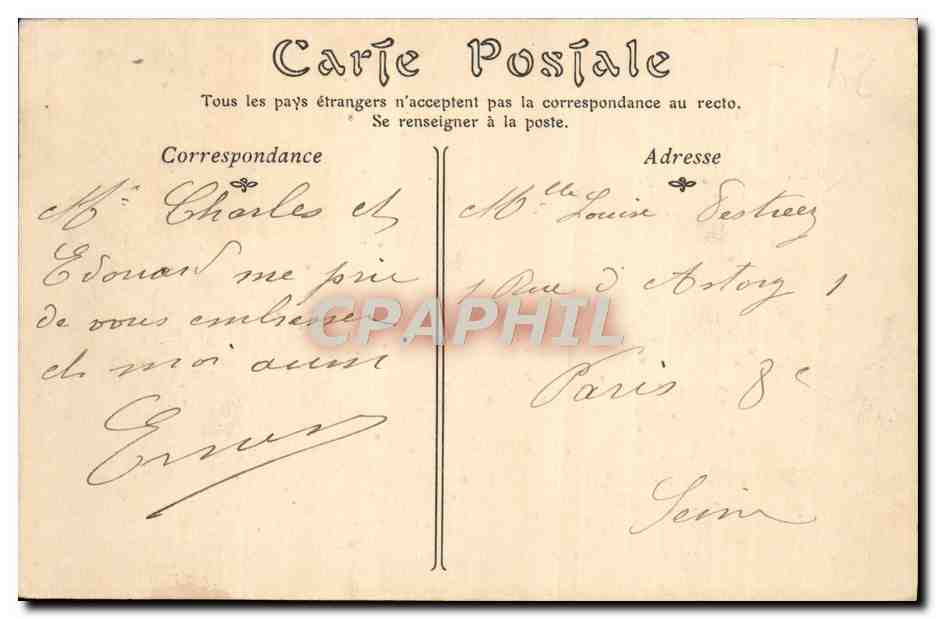 Carte Postale
Tous les pays étrangers n'acceptent pas la correspondance au recto.
Se renseigner à la poste.
Correspondance
Mr Charles et
Edouard me prie
de vous embrasser
et moi aussi
Adresse
Melle Louise
1 Rue d'Astorg 1
Paris 8e
Seine
CPAPHIL